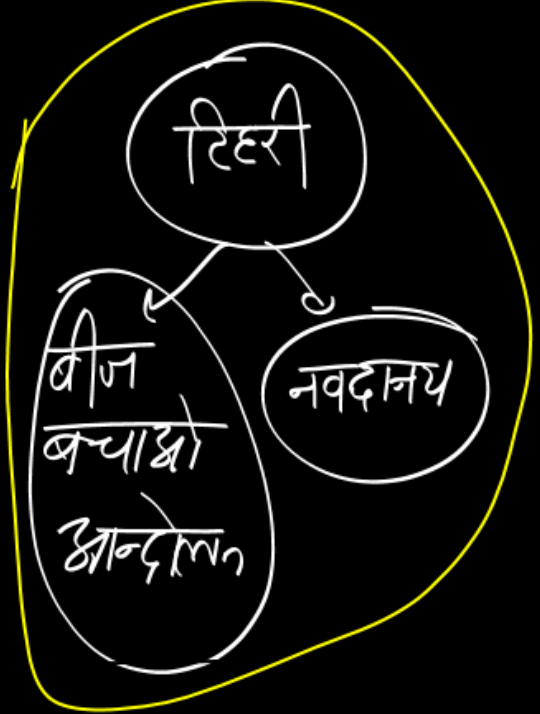 टिहरी
बीज
बचाओ
आन्दोलन
नवदानय